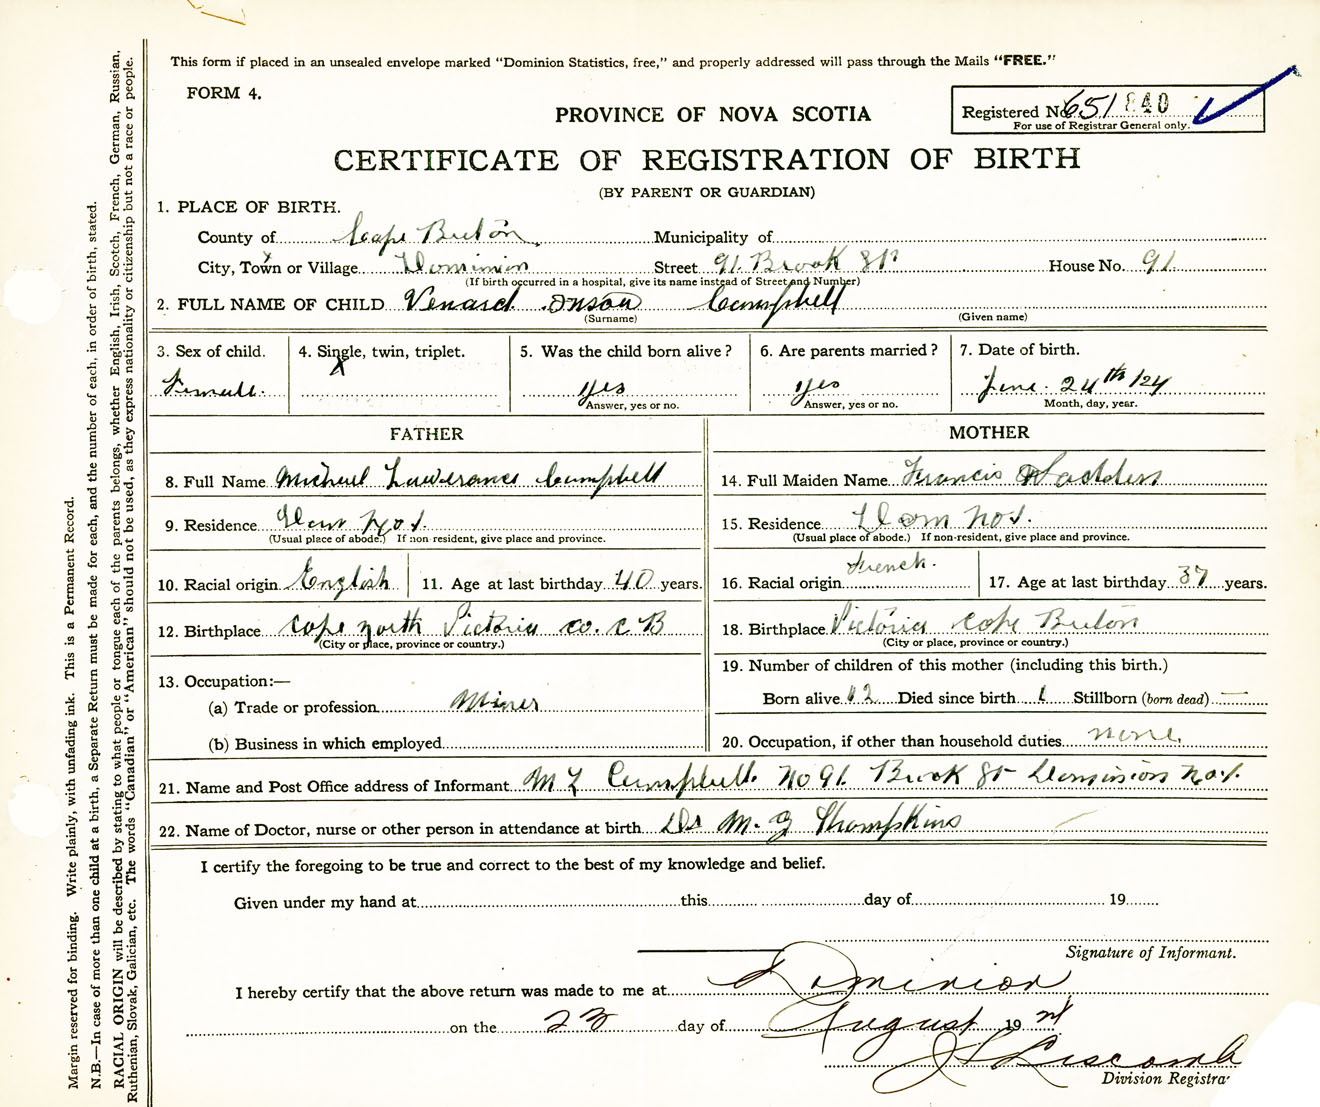 This form if placed in an unsealed envelope marked "Dominion Statistics, free," and properly addressed will pass through the Mails "FREE."
FORM 4.
PROVINCE OF NOVA SCOTIA
Registered No. 651 840
For use of Registrar General only.
CERTIFICATE OF REGISTRATION OF BIRTH
(BY PARENT OR GUARDIAN)
1. PLACE OF BIRTH.
County of Cape Breton Municipality of
City, Town or Village Dominion Street 91 Brook St House No. 91
(If birth occurred in a hospital, give its name instead of Street and Number)
2. FULL NAME OF CHILD Venard Campbell
(Surname) (Given name)
3. Sex of child. 4. Single, twin, triplet. 5. Was the child born alive? 6. Are parents married? 7. Date of birth.
Female. X yes yes June 24th/24
Answer, yes or no. Answer, yes or no. Month, day, year.
FATHER MOTHER
8. Full Name Michael Lawerance Campbell 14. Full Maiden Name Francis Wadden
9. Residence Dom No 1. 15. Residence Dom No 1.
(Usual place of abode.) If non-resident, give place and province. (Usual place of abode.) If non-resident, give place and province.
10. Racial origin English 11. Age at last birthday 40 years. 16. Racial origin French. 17. Age at last birthday 37 years.
12. Birthplace Cape North Victoria Co. C B 18. Birthplace Victoria Cape Breton
(City or place, province or country.) (City or place, province or country.)
13. Occupation:— 19. Number of children of this mother (including this birth.)
(a) Trade or profession Miner Born alive 12 Died since birth 1 Stillborn (born dead) —
(b) Business in which employed 20. Occupation, if other than household duties none.
21. Name and Post Office address of Informant M L Campbell. No 91. Brook St Dominion No 1.
22. Name of Doctor, nurse or other person in attendance at birth Dr M. J Thompkins
I certify the foregoing to be true and correct to the best of my knowledge and belief.
Given under my hand at this day of 19
Signature of Informant.
I hereby certify that the above return was made to me at Dominion
on the 23 day of August 1924
J Liscomb
Division Registra
Margin reserved for binding. Write plainly, with unfading ink. This is a Permanent Record.
N.B.—In case of more than one child at a birth, a Separate Return must be made for each, and the number of each, in order of birth, stated.
RACIAL ORIGIN will be described by stating to what people or tongue each of the parents belongs, whether English, Irish, Scotch, French, German, Russian,
Ruthenian, Slovak, Galician, etc. The words "Canadian" or "American" should not be used, as they express nationality or citizenship but not a race or people.